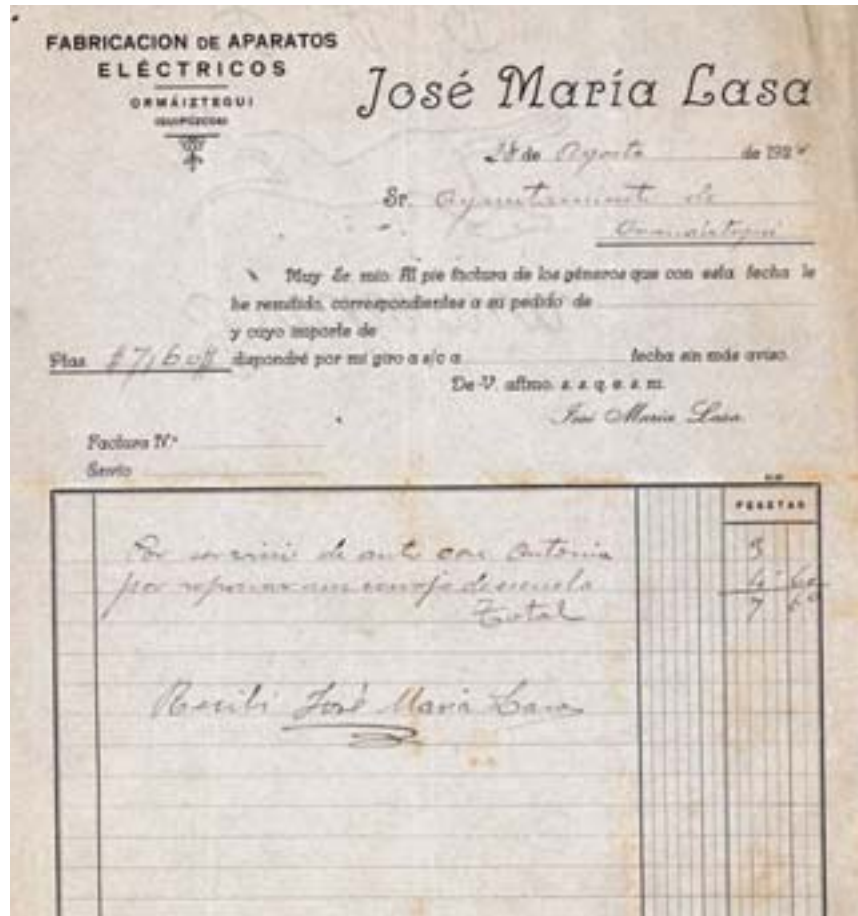 FABRICACION DE APARATOS
ELÉCTRICOS
ORMÁIZTEGUI
(GUIPÚZCOA)
José María Lasa
28 de Agosto de 192
Sr. Ayuntamiento de
Ormaiztegui
Muy Sr. mío: Al pie factura de los géneros que con esta fecha le
he remitido, correspondientes a su pedido de
y cuyo importe de
Ptas. #7,60# dispondré por mi giro a s/c a fecha sin más aviso.
De V. affmo. s. s. q. e. s. m.
José María Lasa
Factura N.º
Envío
PESETAS
Por de con Antonia 3
por reparar de escuela 4 60
Total 7 60
Recibi José Maria Lasa